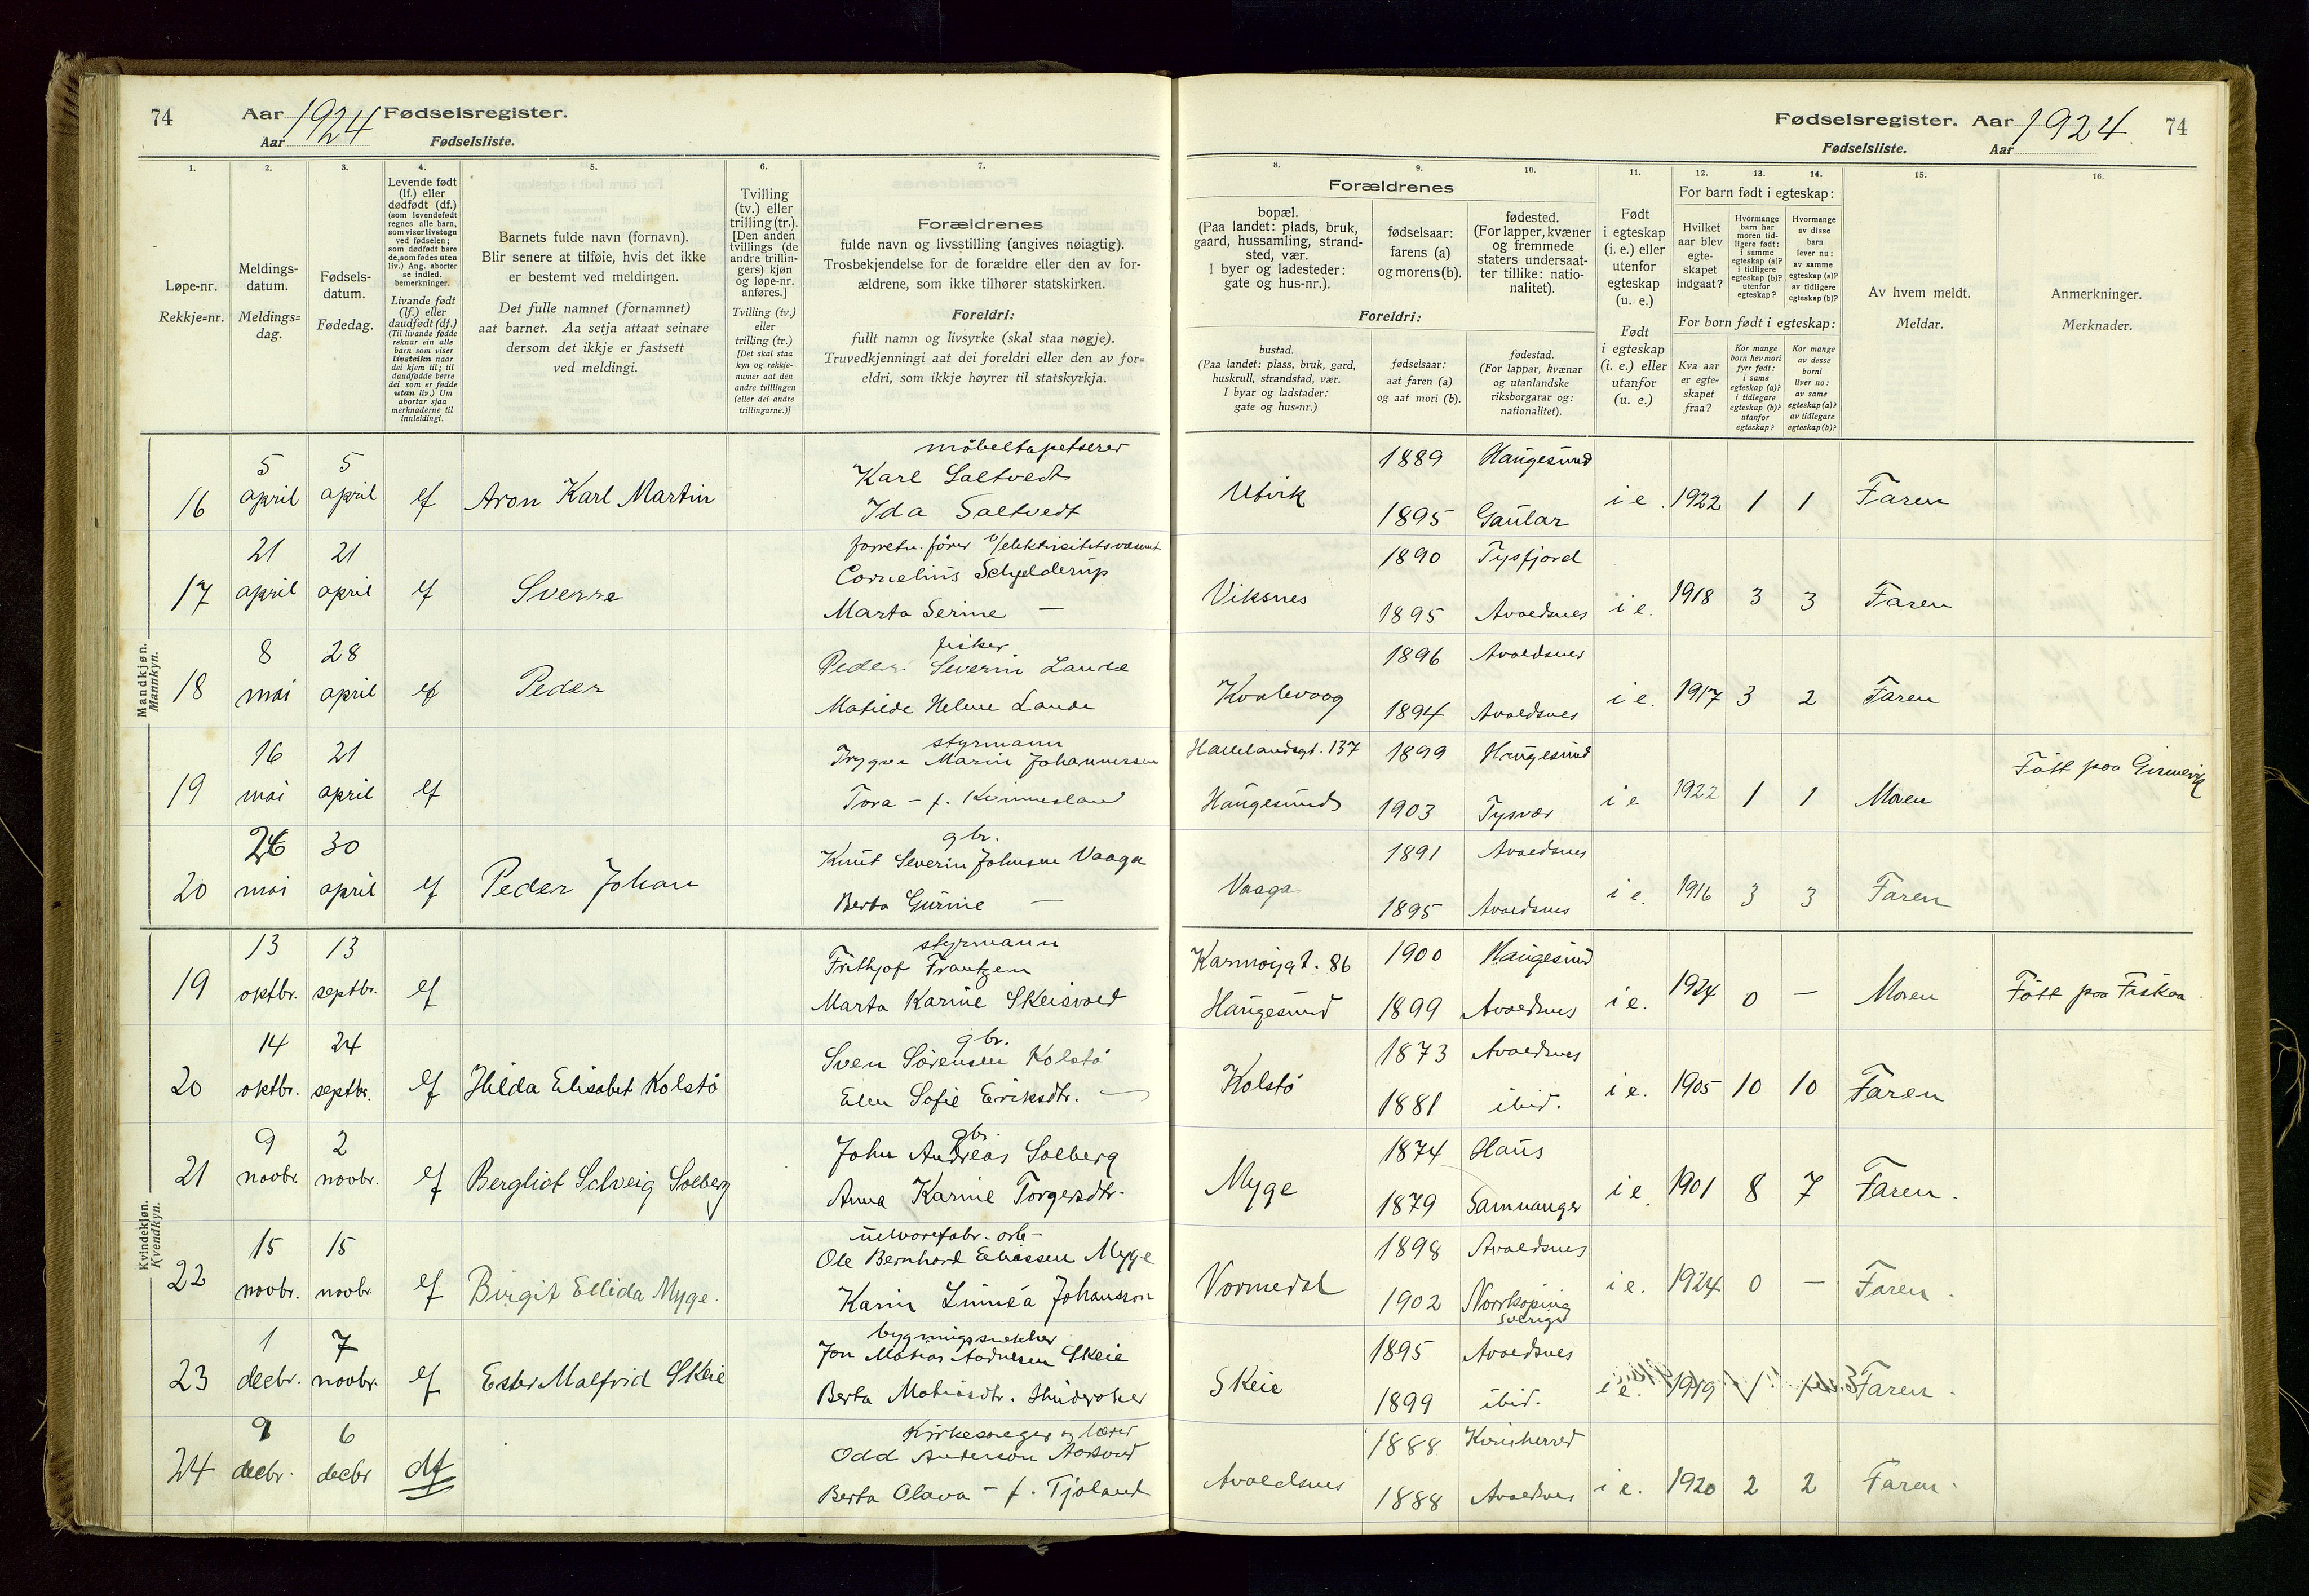 74 Aar 1924 Fødselsregister.
Aar Fødselsliste.
Fødselsregister. Aar 1924. 74
Fødselsliste. Aar
1. 2. 3. 4. 5. 6. 7.
Løpe-nr.
Rekkje=nr.
Meldings-
datum.
Meldings=
dag.
Fødsels-
datum.
Fødedag.
Levende født
(lf.) eller
dødfødt (df.)
(som levendefødt
regnes alle barn,
som viser livstegn
ved fødselen;
som dødfødt bare
de, som fødes uten
liv.) Ang. aborter
se indled.
bemerkninger.
Livande født
(lf.) eller
daudfødt (df.)
(Til livande fødde
reknar ein alle
barn som viser
livsteikn naar
dei kjem til; til
daudfødde berre
dei som er fødde
utan liv.) Um
abortar sjaa
merknaderne til
innleidingi.
Barnets fulde navn (fornavn).
Blir senere at tilføie, hvis det ikke
er bestemt ved meldingen.
Det fulle namnet (fornamnet)
aat barnet. Aa setja attaat seinare
dersom det ikkje er fastsett
ved meldingi.
Tvilling
(tv.) eller
trilling (tr.).
[Den anden
tvillings (de
andre trillin-
gers) kjøn
og løpe-nr.
anføres.]
Tvilling (tv.)
eller
trilling (tr.)
[Det skal staa
kyn og rekkje-
numer aat den
andre tvillingen
(eller dei andre
trillingarne.)]
Forældrenes
fulde navn og livsstilling (angives nøiagtig).
Trosbekjendelse for de forældre eller den av for-
ældrene, som ikke tilhører statskirken.
Foreldri:
fullt namn og livsyrke (skal staa nøgje).
Truvedkjenningi aat dei foreldri eller den av for=
eldri, som ikkje høyrer til statskyrkja.
8. 9. 10. 11. 12. 13. 14. 15. 16.
Forældrenes
bopæl.
(Paa landet: plads, bruk,
gaard, hussamling, strand-
sted, vær.
I byer og ladesteder:
gate og hus-nr.).
fødselsaar:
farens (a)
og morens (b).
fødested.
(For lapper, kvæner
og fremmede
staters undersaat-
ter tillike: natio-
nalitet).
Foreldri:
bustad.
(Paa landet: plass, bruk, gard,
huskrull, strandstad, vær.
I byar og ladstader:
gate og hus=nr.)
fødselsaar:
aat faren (a)
og aat mori (b).
fødestad.
(For lappar, kvænar
og utanlandske
riksborgarar og:
nationalitet).
Født
i egteskap
(i. e.) eller
utenfor
egteskap
(u. e.)
Født
i egteskap
(i. e.) eller
utanfor
(u. e.)
For barn født i egteskap:
Hvilket
aar blev
egte-
skapet
indgaat?
Hvormange
barn har
moren tid-
ligere født:
i samme
egteskap (a)?
i tidligere
egteskap (b)?
utenfor
egteskap?
Hvormange
av disse
barn
lever nu:
av samme
egteskap (a)?
av tidligere
egteskap (b)?
For born født i egteskap:
Kva aar
er egte=
skapet
fraa?
Kor mange
born hev mori
fyrr født:
i same
egteskap (a)?
i tidlegare
egteskap (b)?
utanfor
egteskap?
Kor mange
av desse
borni
liver no:
av same
egteskap (a)?
av tidlegare
egteskap (b)?
Av hvem meldt.
Meldar.
Anmerkninger.
Merknader.
Mandkjøn.
Mannkyn.
møbeltapetserer
5 5 Karl Saltvedt 1889 Haugesund
16 april april lf Aron Karl Martin Ida Saltvedt Utvik 1895 Gaular i e. 1922 1 1 Faren
forretn. fører v/elektricitetsvæsenet
21 21 Cornelius Schjelderup 1890 Tysfjord
17 april april lf Sverre Marta Serine — Viksnes 1895 Avaldsnes i e. 1918 3 3 Faren
fisker
8 28 Peder Severin Lande 1896 Avaldsnes
18 mai april lf Peder Matilde Helene Lande Kvalevaag 1894 Avaldsnes i e. 1917 3 2 Faren
styrmann
16 21 Trygve Marin Johannessen Haraldsgt. 137 1899 Haugesund
19 mai april lf Tora — f. Kvinnesland Haugesund 1903 Tysvær i e 1922 1 1 Moren Fött paa
gbr.
26 30 Knut Severin Johnsen Vaaga 1891 Avaldsnes
20 mai april lf Peder Johan Berta Gurine — Vaaga 1895 Avaldsnes i e. 1916 3 3 Faren
Kvindekjøn.
Kvendkyn.
styrmann
13 13 Frithjof Frantzen Karmøygt. 86 1900 Haugesund
19 oktbr. septbr. lf Marta Karine Skeisvold Haugesund 1899 Avaldsnes i e. 1924 0 — Moren Fött paa Fiskaa
gbr.
14 24 Sven Sörensen Kolstö 1873 Avaldsnes
20 oktbr. septbr. lf Hilda Elisabet Kolstö Elen Sofie Eriksdtr. — Kolstö 1881 ibid. i e. 1905 10 10 Faren
gbr.
9 2 John Andreas Solberg 1874 Haus
21 novbr. novbr. lf Bergliot Solveig Solberg Anna Karine Torgersdtr. Myge 1879 Samnanger i e. 1901 8 7 Faren.
ulvarefabr. arb.
15 15 Ole Bernhard Eliassen Myge 1898 Avaldsnes
22 novbr. novbr. lf Birgit Ellida Myge. Karin Linnéa Johansson Vormedal 1902 Norrköping Sverige i e. 1924 0 — Faren.
bygningssnekker
1 7 Jon Matias Aadnesen Skeie 1895 Avaldsnes
23 decbr. novbr. lf Ester Malfrid Skeie Berta Matiasdtr. Skeie 1899 ibid. i e. 1919 1 1 Faren.
Kirkesanger og lærer
9 6 Odd Anderson 1888 Kvinherred
24 decbr. decbr df Berta Olava — f. Tjøland Avaldsnes 1888 Avaldsnes i e. 1920 2 2 Faren.